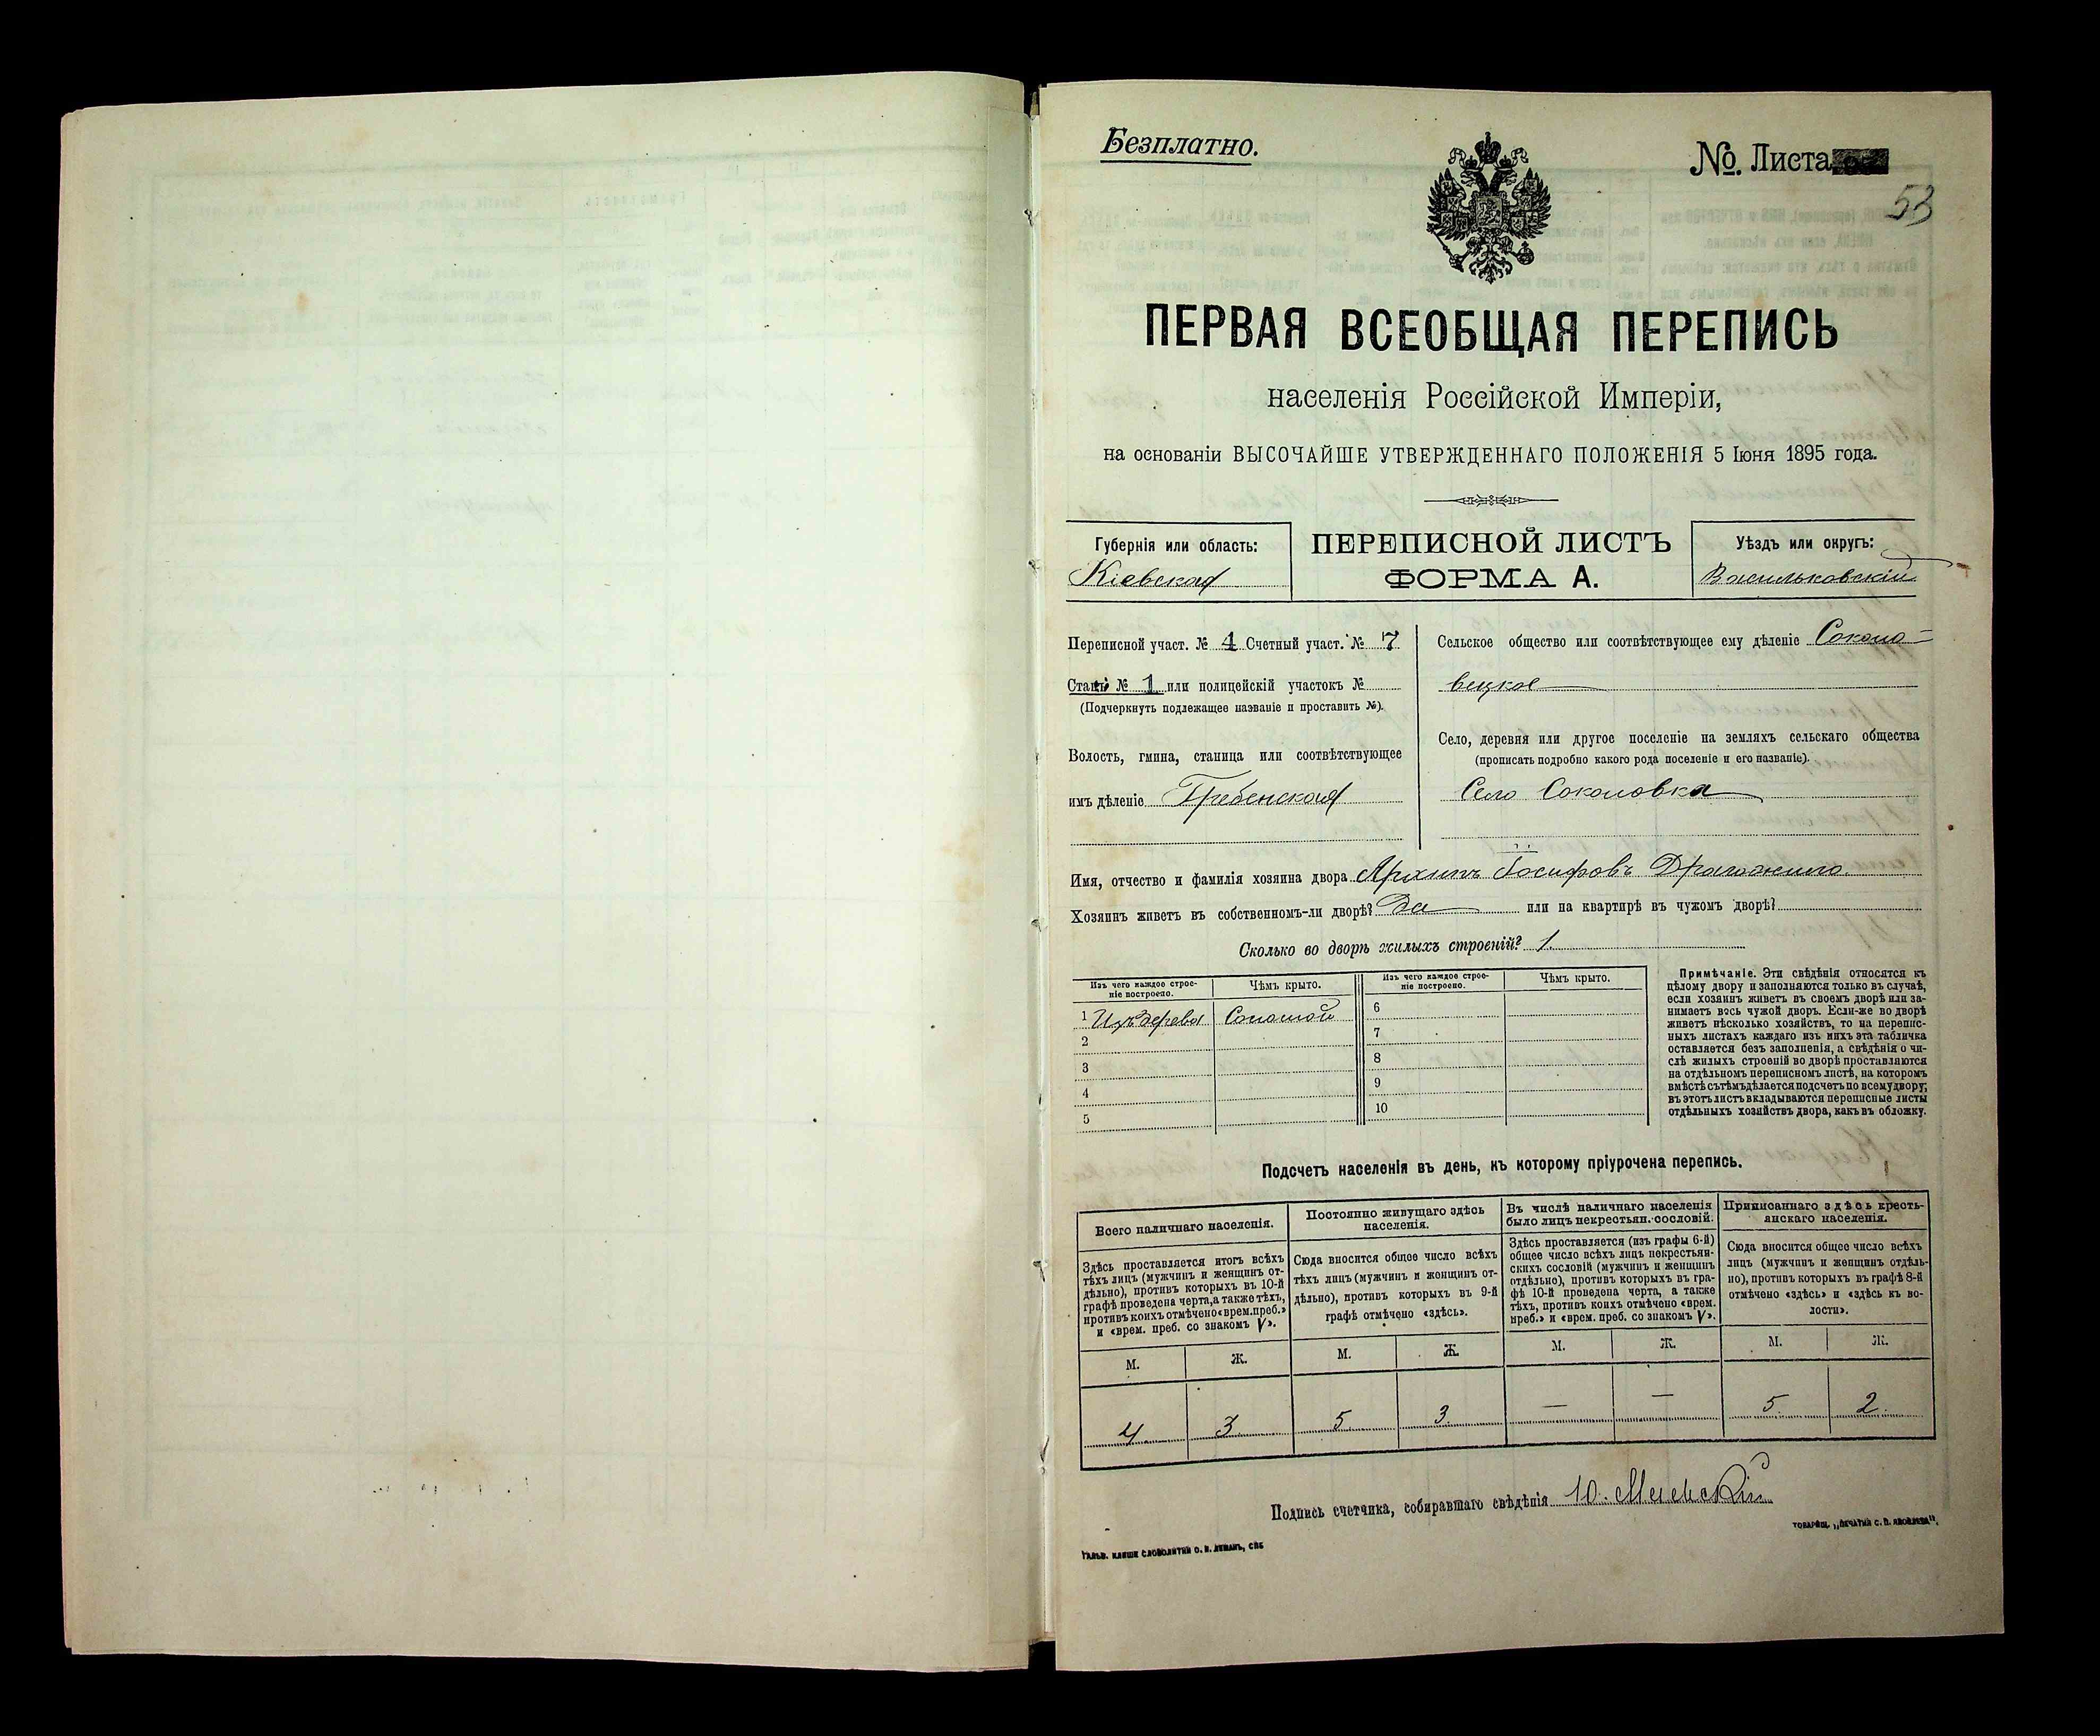 Безплатно.
№. Листа
53
ПЕРВАЯ ВСЕОБЩАЯ ПЕРЕПИСЬ
населенія Россійской Имперіи,
на основаніи ВЫСОЧАЙШЕ УТВЕРЖДЕННАГО ПОЛОЖЕНІЯ 5 Іюня 1895 года.
Губернія или область:
Кіевская
ПЕРЕПИСНОЙ ЛИСТЪ
ФОРМА А.
Уѣздъ или округъ:
Васильковскій
Переписной участ. № 4 Счетный участ. № 7
Станъ № 1 или полицейскій участокъ №
(Подчеркнуть подлежащее названіе и проставить №).
Волость, гмина, станица или соотвѣтствующее
имъ дѣленіе Гребенская
Сельское общество или соотвѣтствующее ему дѣленіе Соколо-
вецкое
Село, деревня или другое поселеніе на земляхъ сельскаго общества
(прописать подробно какого рода поселеніе и его названіе).
Село Соколовка
Имя, отчество и фамилія хозяина двора Архипъ Іосифовъ
Хозяинъ живетъ въ собственномъ-ли дворѣ? Да или на квартирѣ въ чужомъ дворѣ?
Сколько во дворѣ жилыхъ строеній? 1.
Изъ чего каждое строе-
ніе построено.
Чѣмъ крыто.
Изъ чего каждое строе-
ніе построено.
Чѣмъ крыто.
1 Изъ дерева Соломой
2
3
4
5
6
7
8
9
10
Примѣчаніе. Эти свѣдѣнія относятся къ
цѣлому двору и заполняются только въ случаѣ,
если хозяинъ живетъ въ своемъ дворѣ или за-
нимаетъ весь чужой дворъ. Если-же во дворѣ
живетъ нѣсколько хозяйствъ, то на перепис-
ныхъ листахъ каждаго изъ нихъ эта табличка
оставляется безъ заполненія, а свѣдѣнія о чи-
слѣ жилыхъ строеній во дворѣ проставляются
на отдѣльномъ переписномъ листѣ, на которомъ
вмѣстѣ съ тѣмъ дѣлается подсчетъ по всему двору;
въ этотъ листъ вкладываются переписные листы
отдѣльныхъ хозяйствъ двора, какъ въ обложку.
Подсчетъ населенія въ день, къ которому пріурочена перепись.
Всего наличнаго населенія.
Здѣсь проставляется итогъ всѣхъ
тѣхъ лицъ (мужчинъ и женщинъ от-
дѣльно), противъ которыхъ въ 10-й
графѣ проведена черта, а также тѣхъ,
противъ коихъ отмѣчено «врем. преб.»
и «врем. преб. со знакомъ V».
Постоянно живущаго здѣсь
населенія.
Сюда вносится общее число всѣхъ
тѣхъ лицъ (мужчинъ и женщинъ от-
дѣльно), противъ которыхъ въ 9-й
графѣ отмѣчено «здѣсь».
Въ числѣ наличнаго населенія
было лицъ некрестьян. сословій.
Здѣсь проставляется (изъ графы 6-й)
общее число всѣхъ лицъ некрестьян-
скихъ сословій (мужчинъ и женщинъ
отдѣльно), противъ которыхъ въ гра-
фѣ 10-й проведена черта, а также
тѣхъ, противъ коихъ отмѣчено «врем.
преб.» и «врем. преб. со знакомъ V».
Приписаннаго здѣсь кресть-
янскаго населенія.
Сюда вносится общее число всѣхъ
лицъ (мужчинъ и женщинъ отдѣль-
но), противъ которыхъ въ графѣ 8-й
отмѣчено «здѣсь» и «здѣсь къ во-
лости».
М. Ж. М. Ж. М. Ж. М. Ж.
4 3. 5. 3. — — 5. 2.
Подпись счетчика, собиравшаго свѣдѣнія Ю.
ГАЛЬВ. КЛИШЕ СЛОВОЛИТНИ О. И. ЛЕМАНЪ, СПБ
ТОВАРИЩ. „ПЕЧАТНИ С. П. ЯКОВЛЕВА".